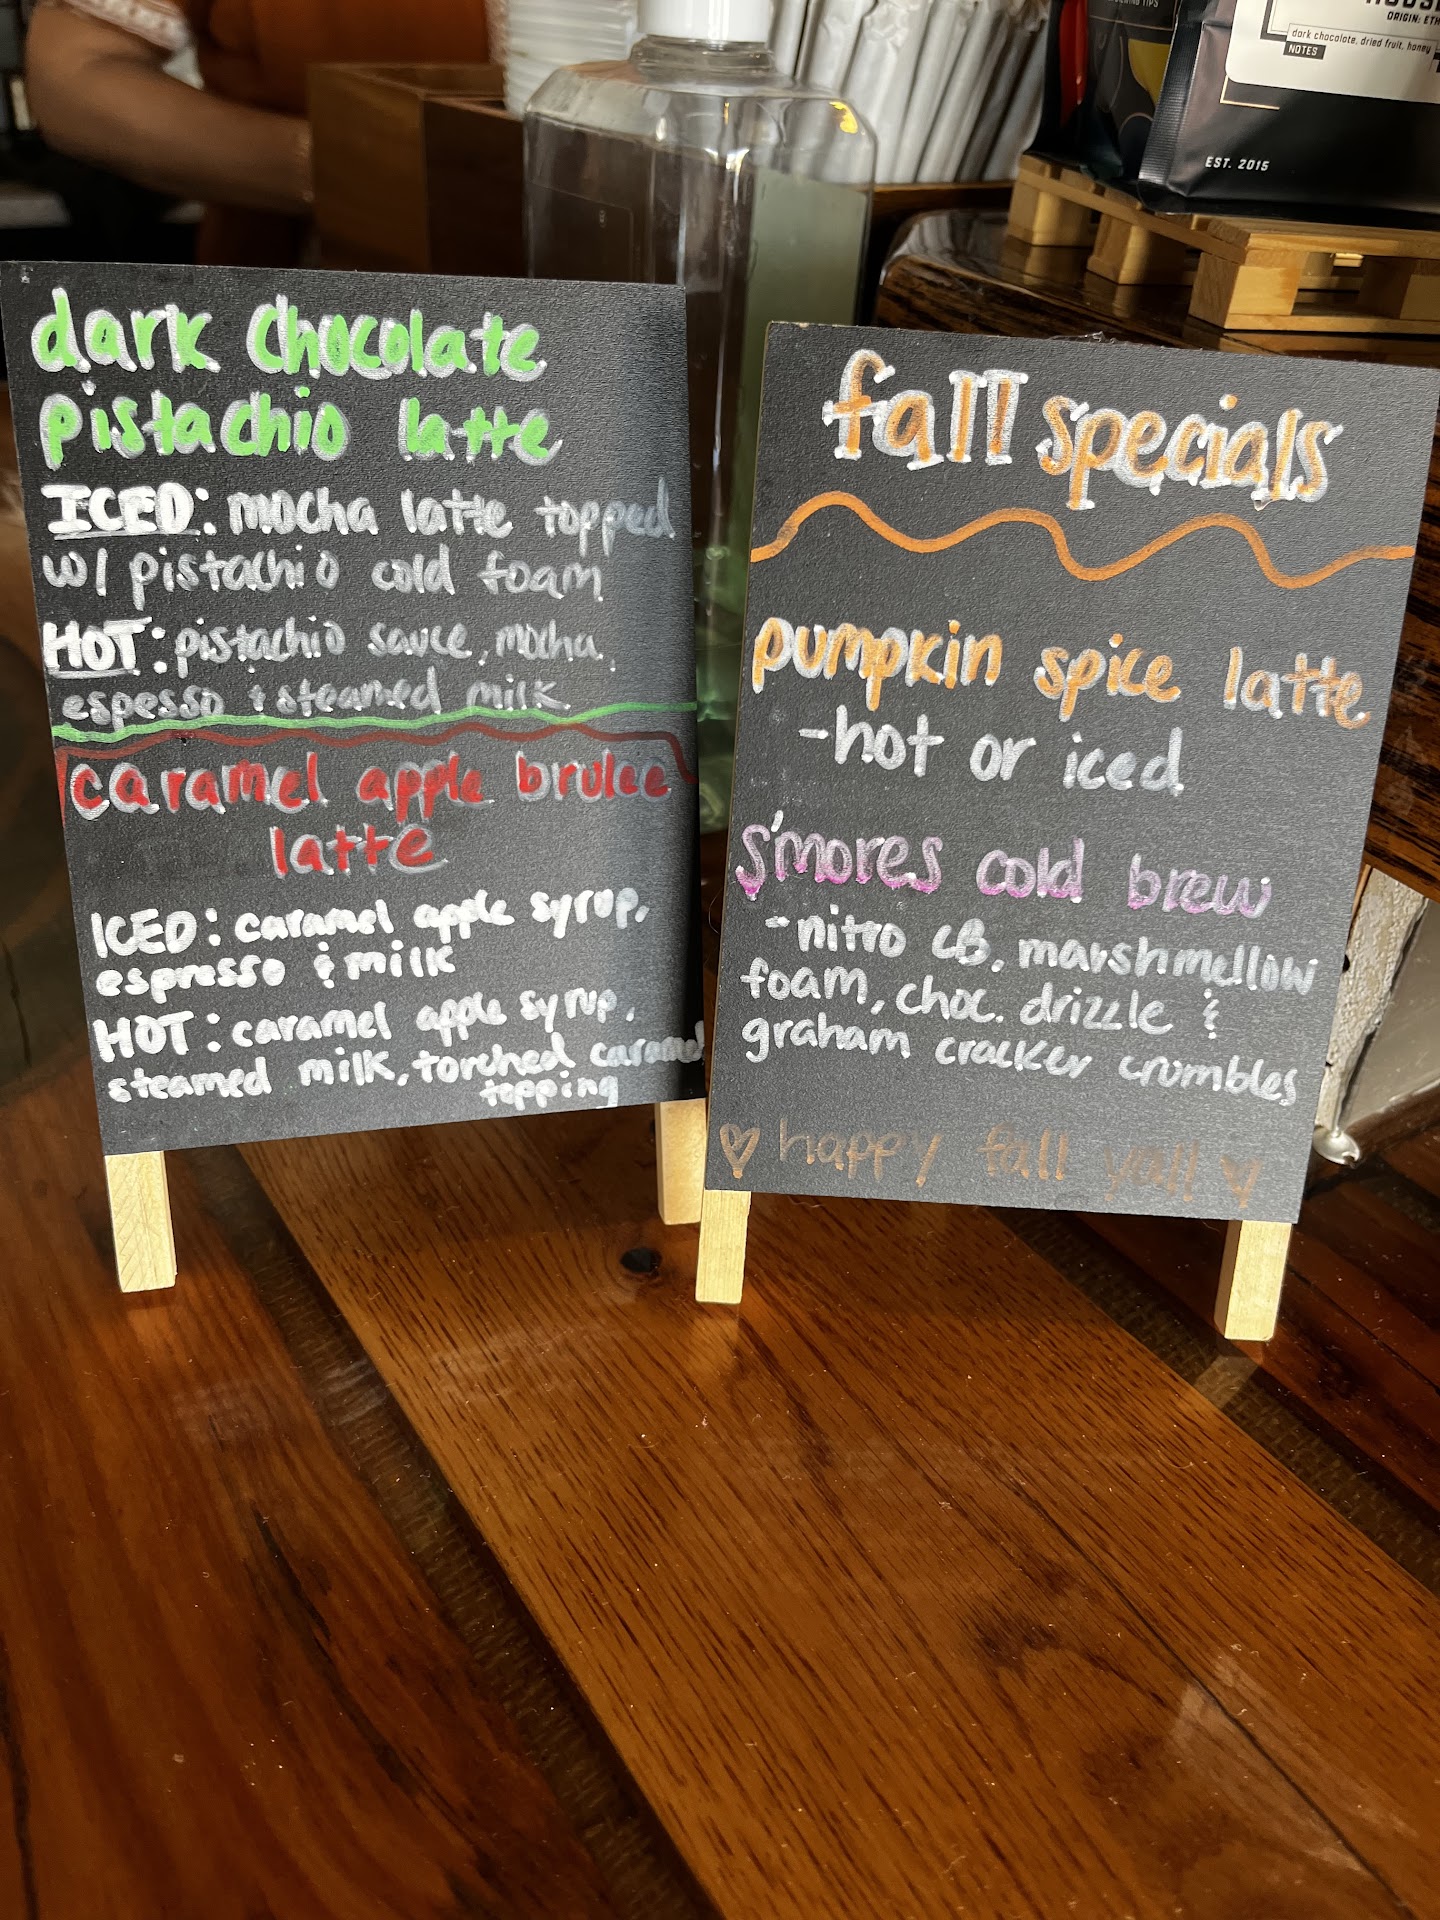 dark chocolate
pistachio latte
ICED: mocha latte topped
w/ pistachio cold foam
HOT: pistachio sauce, mocha,
espesso & steamed milk
caramel apple brulee
latte
ICED: caramel apple syrup,
espresso & milk
HOT: caramel apple syrup,
steamed milk, torched caramel
topping
fall specials
pumpkin spice latte
-hot or iced
s'mores cold brew
-nitro CB, marshmellow
foam, choc. drizzle &
graham cracker crumbles
♡ happy fall yall ♡
ORIGIN: ETH
dark chocolate, dried fruit, honey
NOTES
EST. 2015